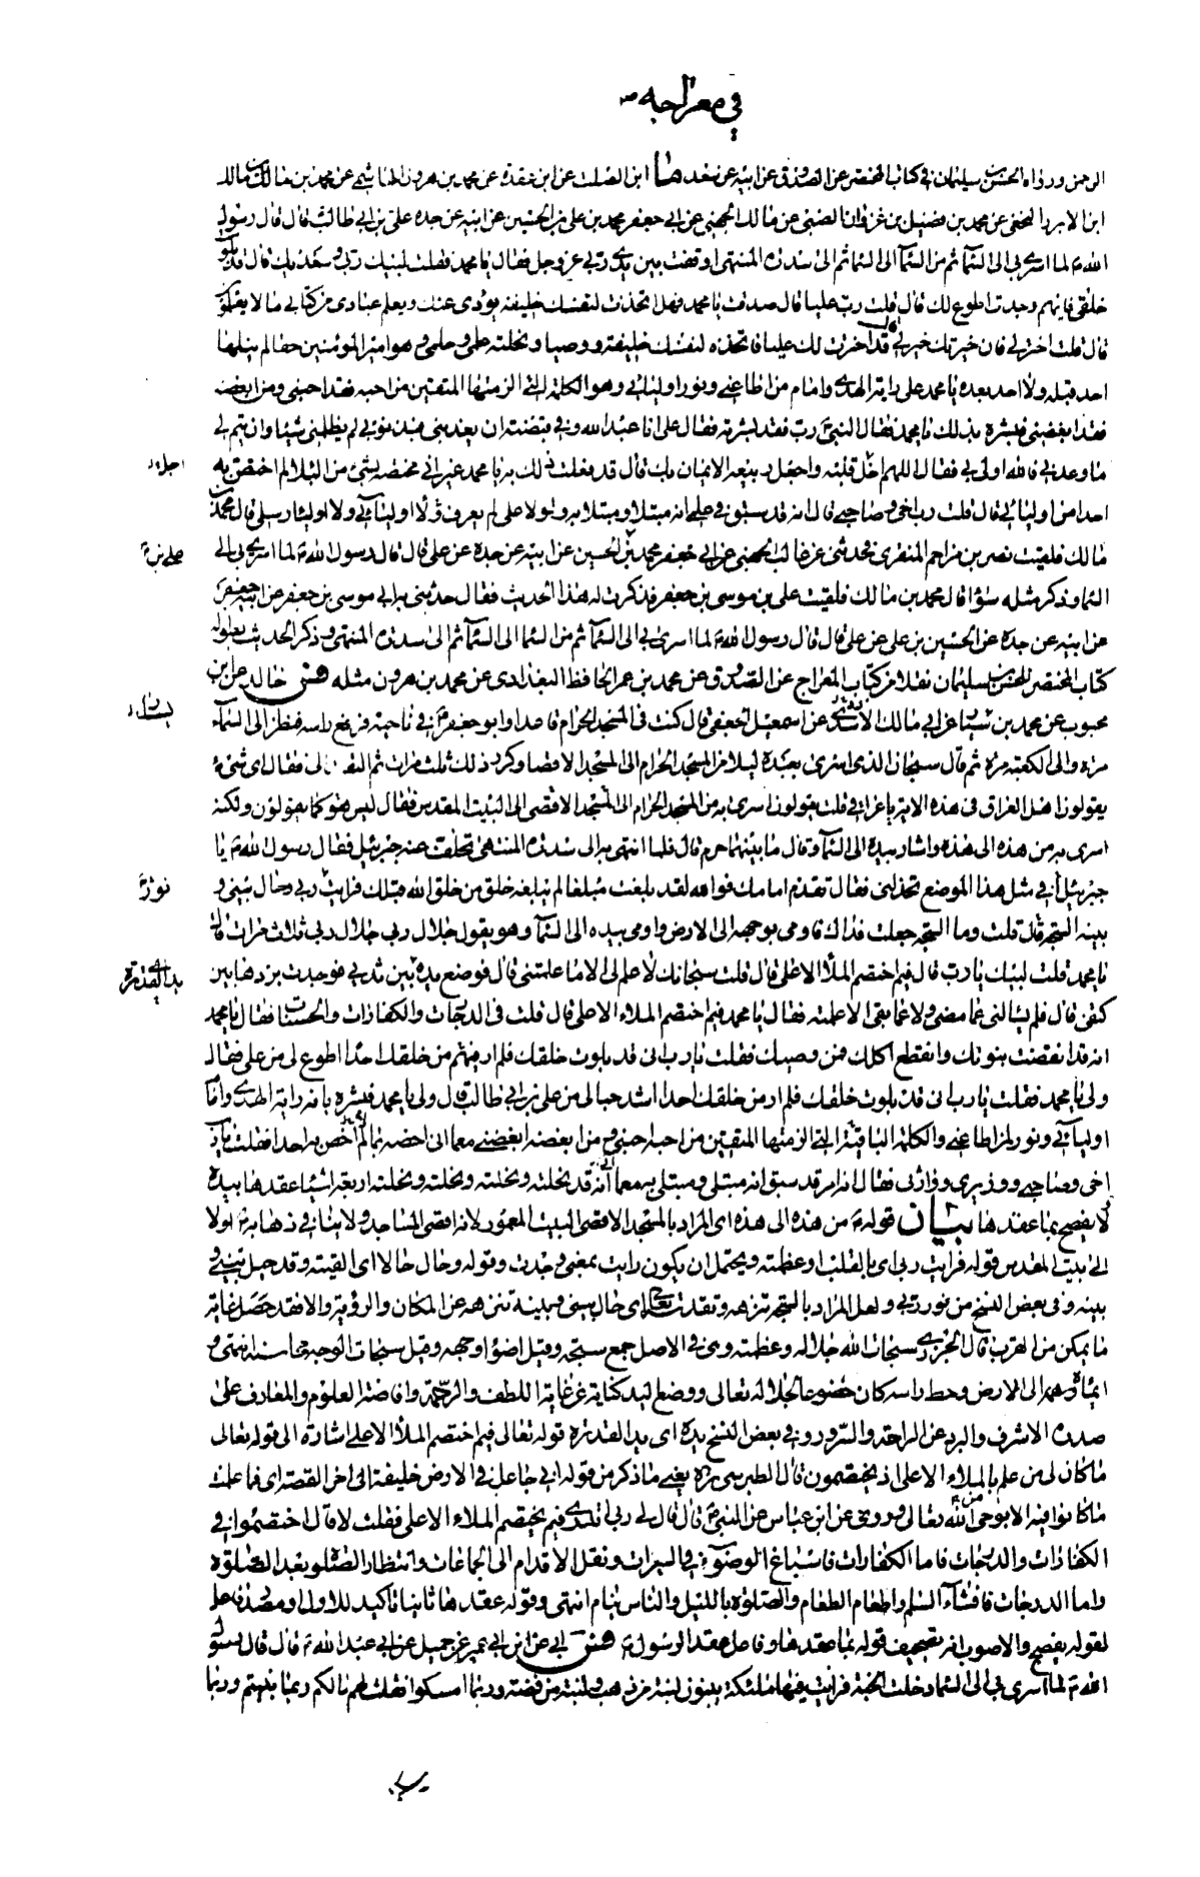 في معراجه ص
الرحمن ورواه الحسن بن سليمان في كتاب المحتضر عن الصدوق عن ابيه عن سعد ما ابن الصلت عن ابن عقدة عن محمد بن هرون الهاشمي عن محمد بن مالك بن
ابن الابرد النخعي عن محمد بن فضيل بن غزوان الضبي عن مالك الجهني عن ابي جعفر محمد بن علي بن الحسين عن ابيه عن جده علي بن ابي طالب قال قال رسول
الله ص لما اسري بي الى السماء ثم من السماء الى السماء ثم الى سدرة المنتهى اوقفت بين يدي ربي عز وجل فقال يا محمد فقلت لبيك ربي وسعديك قال قد بلوت
خلقي فايهم وجدت اطوع لك قال قلت رب عليا قال صدقت يا محمد فهل اتخذت لنفسك خليفة يؤدي عنك ويعلم عبادي من كتابي ما لا يعلمون
قال قلت اختر لي فان خيرتك خير لي قال قد اخترت لك عليا فاتخذه لنفسك خليفة ووصيا ونحلته علمي وحلمي وهو امير المؤمنين حقا لم ينلها
احد قبله ولا احد بعده يا محمد علي راية الهدى وامام من اطاعني ونور اوليائي وهو الكلمة التي الزمتها المتقين من احبه فقد احبني ومن ابغضه
فقد ابغضني فبشره بذلك يا محمد فقال النبي ص رب فقد بشرته فقال علي انا عبد الله وفي قبضته ان يعذبني فبذنوبي لم يظلمني شيئا وان يتم لي
ما وعدني فالله اولى بي فقال اللهم اجل قلبه واجعل ربيعه الايمان بك قال قد فعلت ذلك به يا محمد غير اني مختصه بشيء من البلاء لم اختص به
اجله
احدا من اوليائي قال قلت رب اخي وصاحبي قال انه قد سبق في علمي انه مبتلا ومبتلا به ولولا علي لم يعرف ولاء اوليائي ولا اولياء رسلي قال محمد بن
مالك فلقيت نصر بن مزاحم المنقري فحدثني عن غالب الجهني عن ابي جعفر محمد بن الحسين عن ابيه عن جده عن علي قال قال رسول الله ص لما اسري بي الى
علي بن
السماء وذكر مثله سواء قال محمد بن مالك فلقيت علي بن موسى بن جعفر فذكرت له هذا الحديث فقال حدثني به ابي موسى بن جعفر عن ابيه جعفر
عن ابيه عن جده عن الحسين بن علي عن علي قال قال رسول الله ص لما اسري بي الى السماء ثم من السماء الى السماء ثم الى سدرة المنتهى وذكر الحديث بطوله
كتاب المحتضر للحسن بن سليمان نقلا من كتاب المعراج عن الصدوق عن محمد بن عمر الحافظ البغدادي عن محمد بن هرون مثله فس خالد عن ابن
محبوب عن محمد بن عن ابي مالك الازدي عن اسمعيل الجعفي قال كنت في المسجد الحرام قاعدا وابو جعفر ع في ناحية فرفع راسه فنظر الى السماء
مرة والى الكعبة مرة ثم قال سبحان الذي اسرى بعبده ليلا من المسجد الحرام الى المسجد الاقصا وكرر ذلك ثلث مرات ثم التفت الى فقال اي شيء
يقولون اهل العراق في هذه الاية يا عراقي قلت يقولون اسري به من المسجد الحرام الى المسجد الاقصى الى البيت المقدس فقال ليس هو كما يقولون ولكنه
اسري به من هذه الى هذه واشار بيده الى السماء وقال ما بينهما حرم قال فلما انتهى به الى سدرة المنتهى تخلف عنه جبرئيل فقال رسول الله ص يا
جبرئيل أفي مثل هذا الموضع تخذلني فقال تقدم امامك فوالله لقد بلغت مبلغا لم يبلغه خلق من خلق الله قبلك فرايت ربي وحال بيني و
نور
بينه السبحة قال قلت وما السبحة جعلت فداك فاومى بوجهه الى الارض واومى بيده الى السماء وهو يقول جلال ربي جلال ربي ثلاث مرات قال
يا محمد قلت لبيك يا رب قال فيم اختصم الملأ الاعلى قال قلت سبحانك لا علم لي الا ما علمتني قال فوضع يده بين ثديي فوجدت بردها بين
يد القدرة
كتفي قال فلم يسالني عما مضى ولا عما بقي الا علمته فقال يا محمد فيم اختصم الملاء الاعلى قال قلت في الدرجات والكفارات والحسنات فقال يا محمد
انه قد انقضت نبوتك وانقطع اكلك فمن وصيك فقلت يا رب اني قد بلوت خلقك فلم ار فيهم من خلقك احدا اطوع لي من علي فقال
ولي يا محمد فقلت يا رب اني قد بلوت خلقك فلم ار من خلقك احدا اشد حبا لي من علي بن ابي طالب قال ولي يا محمد فبشره بانه راية الهدى وامام
اوليائي ونور لمن اطاعني والكلمة الباقية التي الزمتها المتقين من احبه احبني ومن ابغضه ابغضني مع ما اني اخصه بما لم اخص به احدا فقلت يا رب
اخي وصاحبي ووزيري ووارثي فقال انه امر قد سبق انه مبتلى ومبتلى به مع ما اني قد نحلته ونحلته ونحلته ونحلته اربعة اشياء عقدها بيده
لا يفصح بما عقدها بيان قوله ع من هذه الى هذه اي المراد بالمسجد الاقصى البيت المعمور لانه اقصى المساجد ولا ينافي ذهابه ص اولا
الى بيت المقدس قوله فرايت ربي اي بالقلب او عظمته ويحتمل ان يكون رايت بمعنى وجدت وقوله وحال حالا اي القيته وقد حيل بيني و
بينه وفي بعض النسخ من نور ربي ولعل المراد بالسبحة تنزهه وتقدسه تعالى اي حال بيني وبينه تنزهه عن المكان والرؤية والا فقد حصل غاية
ما يمكن من القرب قال الجزري سبحات الله جلاله وعظمته وهي في الاصل جمع سبحة وقيل اضواء وجهه وقيل سبحات الوجه محاسنه انتهى و
ايماؤه الى الارض وحط راسه كان خضوعا لجلاله تعالى ووضع اليد كناية عن غاية اللطف والرحمة وافاضة العلوم والمعارف على
صدره الاشرف والبرد عن الراحة والسرور وفي بعض النسخ يده اي يد القدرة قوله تعالى فيم اختصم الملأ الاعلى اشارة الى قوله تعالى
ما كان لي من علم بالملاء الاعلى اذ يختصمون قال الطبرسي ره يعني ما ذكر من قوله اني جاعل في الارض خليفة الى اخر القصة اي فما علمت
ما كانوا فيه الا بوحي من الله تعالى وروى عن ابن عباس عن النبي ص قال قال لي ربي اتدري فيم يختصم الملاء الاعلى فقلت لا قال اختصموا في
الكفارات والدرجات فاما الكفارات فاسباغ الوضوء في السبرات ونقل الاقدام الى الجماعات وانتظار الصلوة بعد الصلوة
واما الدرجات فافشاء السلم واطعام الطعام والصلوة بالليل والناس نيام انتهى وقوله عقدها ثانيا تاكيد للاول او مصدر فاعل
لقوله يفصح والاصوب انه تصحيف قوله بما عقدها وفاعل عقد الرسول ص فس ابي عن ابن ابي عمير عن جميل عن ابي عبد الله ع قال قال رسول
الله ص لما اسري بي الى السماء دخلت الجنة فرايت فيها ملئكة يبنون لبنة من ذهب ولبنة من فضة وربما امسكوا فقلت لهم مالكم ربما بنيتم وربما